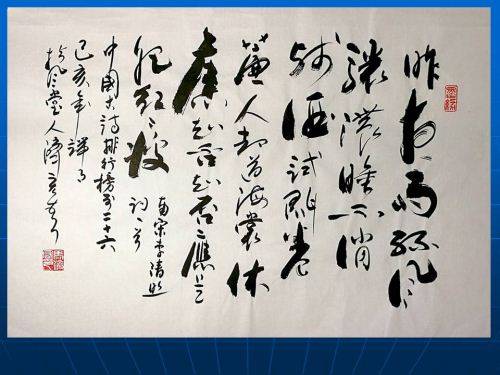 昨夜雨疏风
骤浓睡不消
残酒试问卷
簾人却道海棠依
舊知否知否應是
肥红瘦
南宋李清照
词一首
中國古詩排行榜第二十六
己亥年
堂人濤